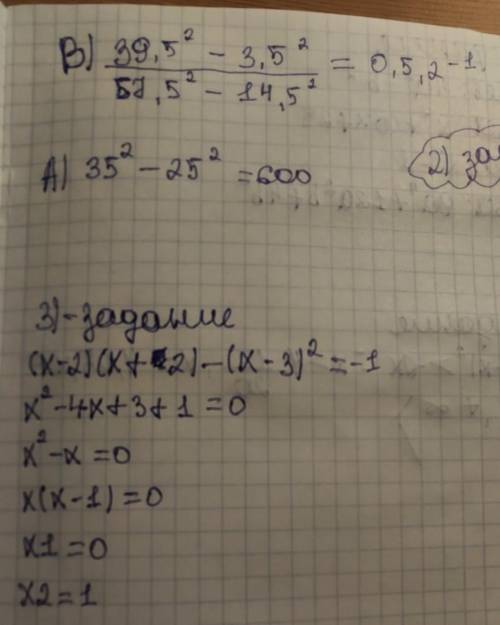 В) 39,5² - 3,5² / 57,5² - 14,5² = 0,5, 2⁻¹
А) 35² - 25² = 600
2) за
3)-задание
(x-2)(x+2)-(x-3)²=-1
x²-4x+3+1=0
x²-x=0
x(x-1)=0
x1=0
x2=1